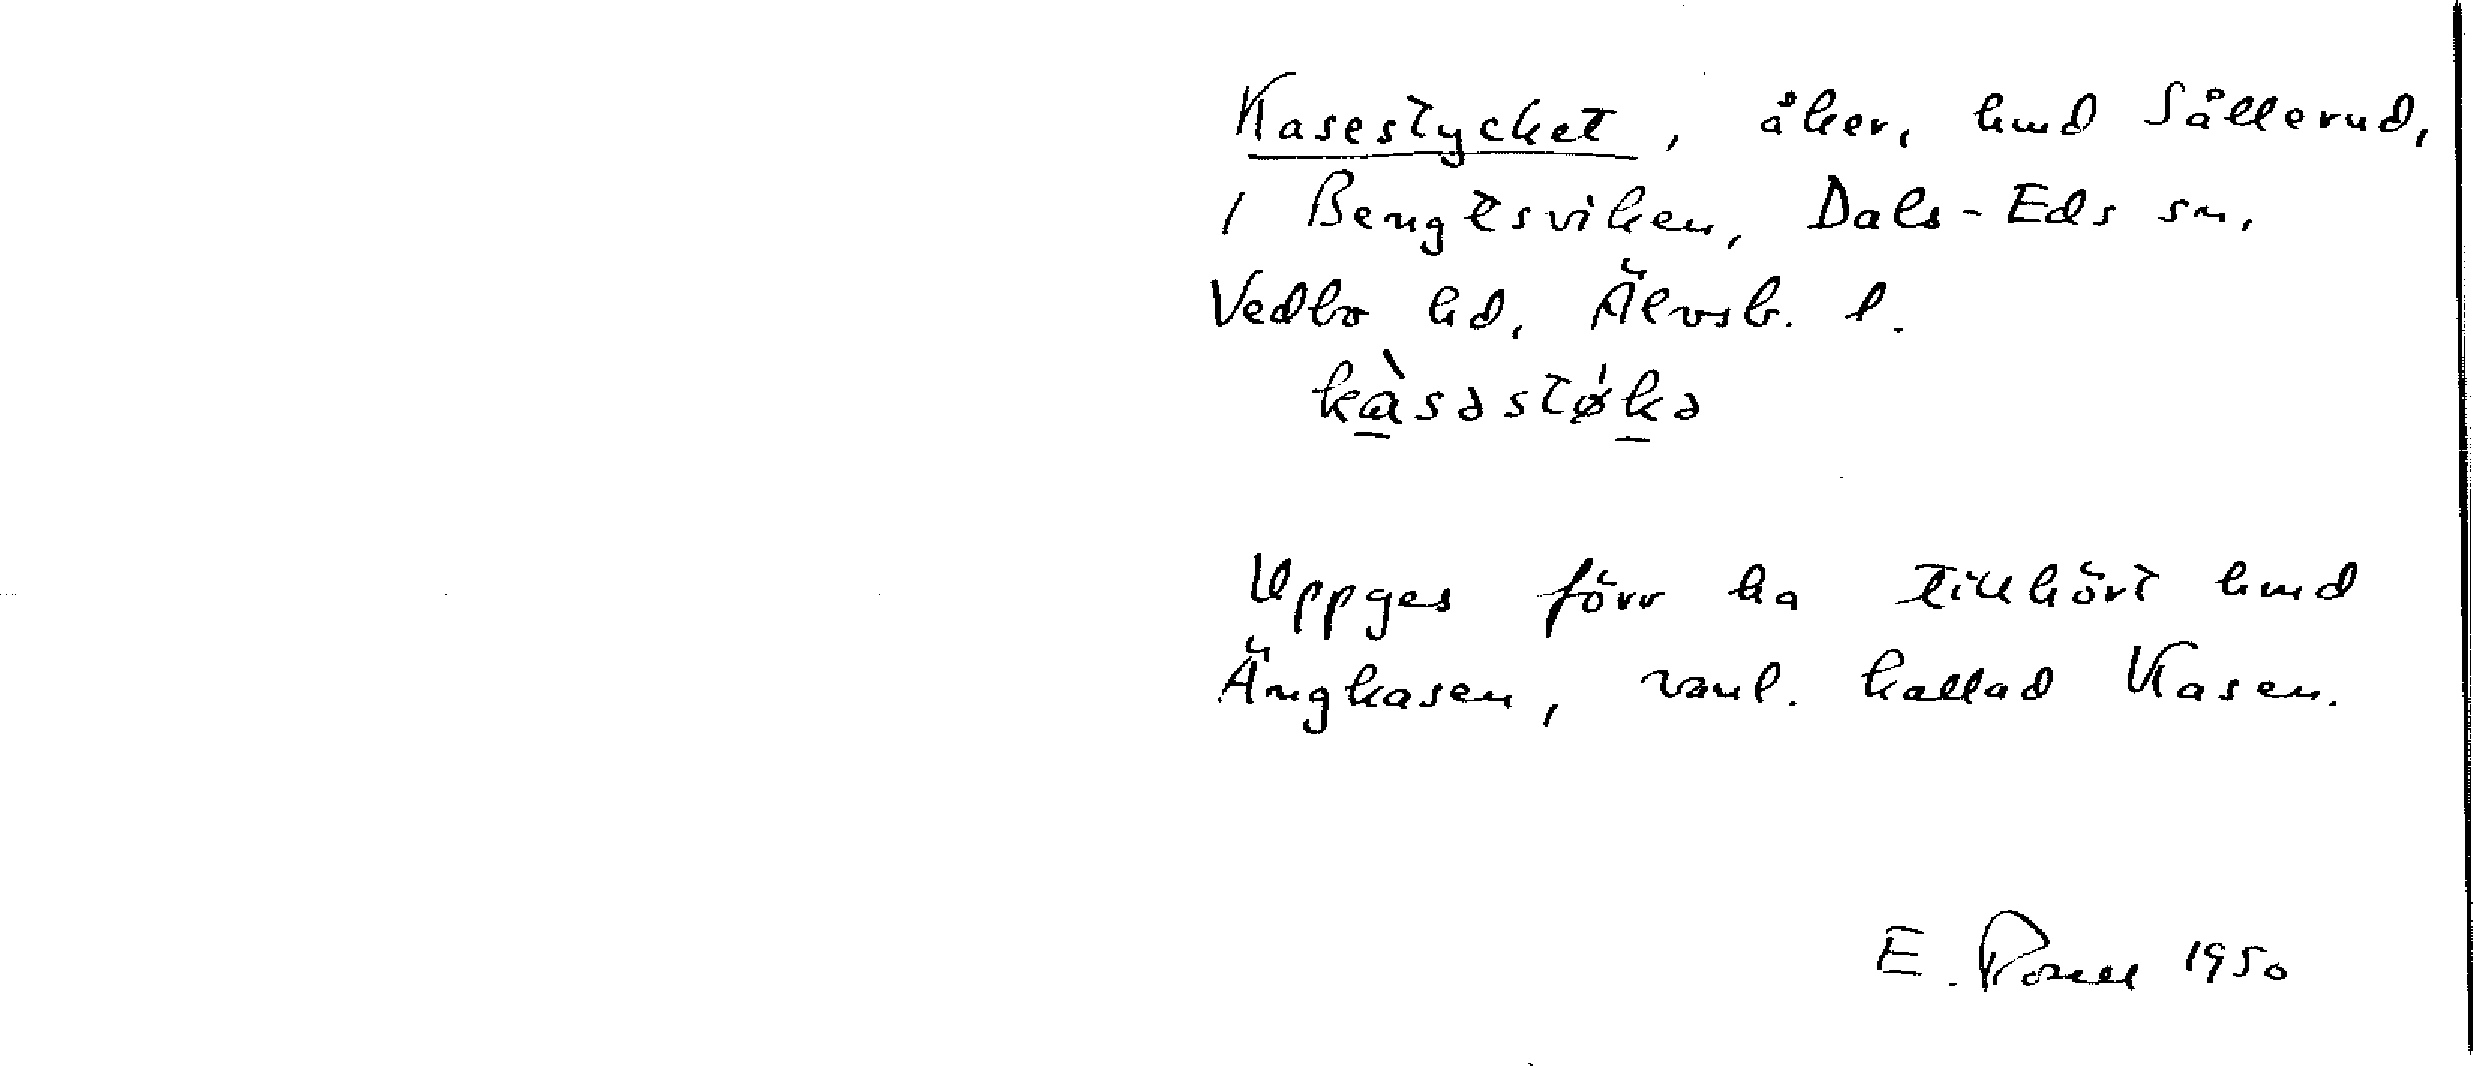 Kasestycket, åker, hmd Sållerud,
1 Bengtsviken, Dals-Eds sn,
Vedbo hd, Älvsb. l.
kàsəstǿkə
Uppges förr ha tillhört hmd
Ängkasen, vanl. kallad Kasen.
E. 1950